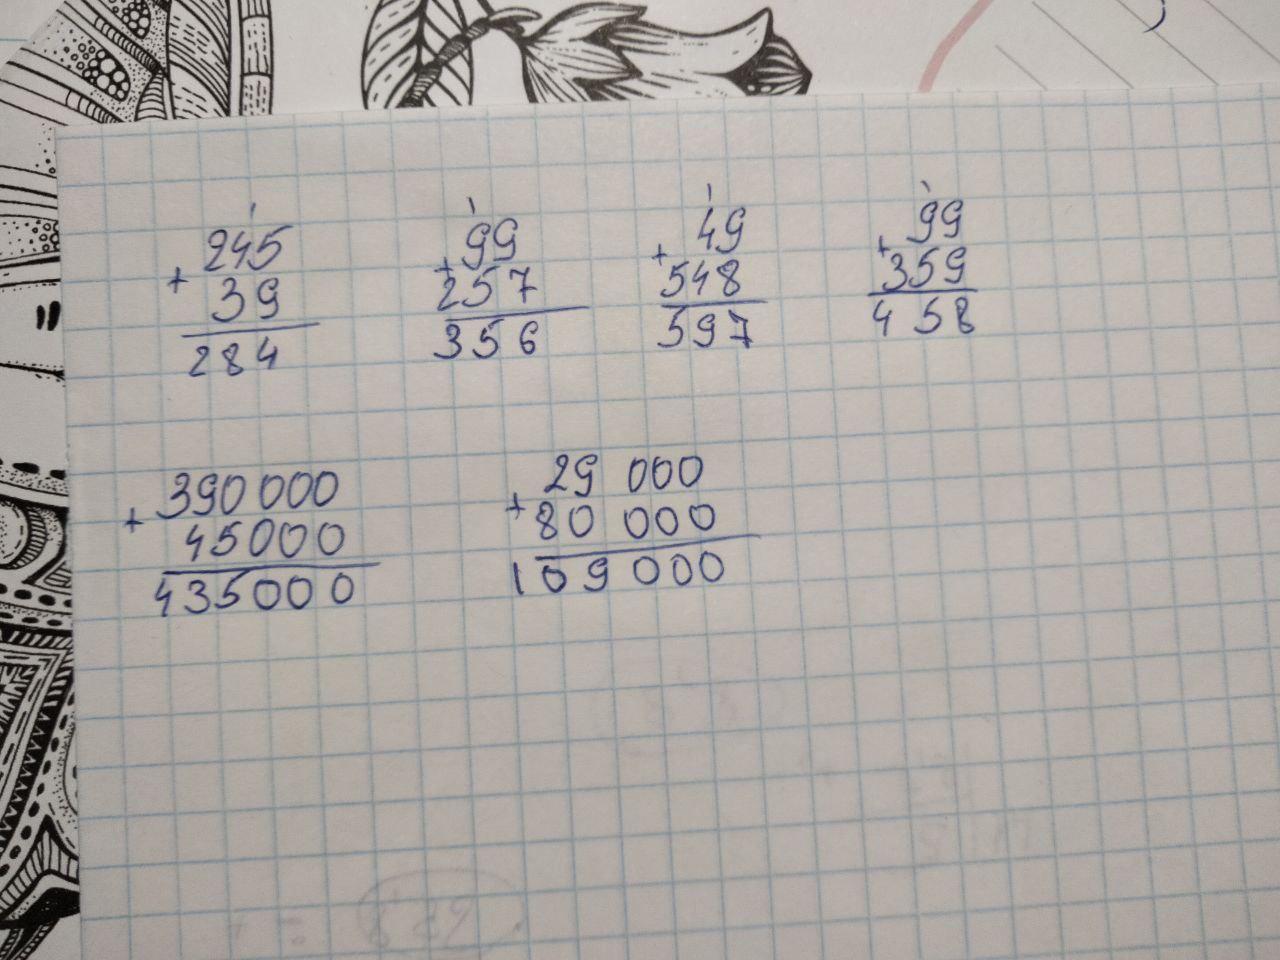 1 1 1 1
245 99 49 99
+ + + +
39 257 548 359
284 356 597 458
390 000 29 000
+ +
45000 80 000
435000 109 000